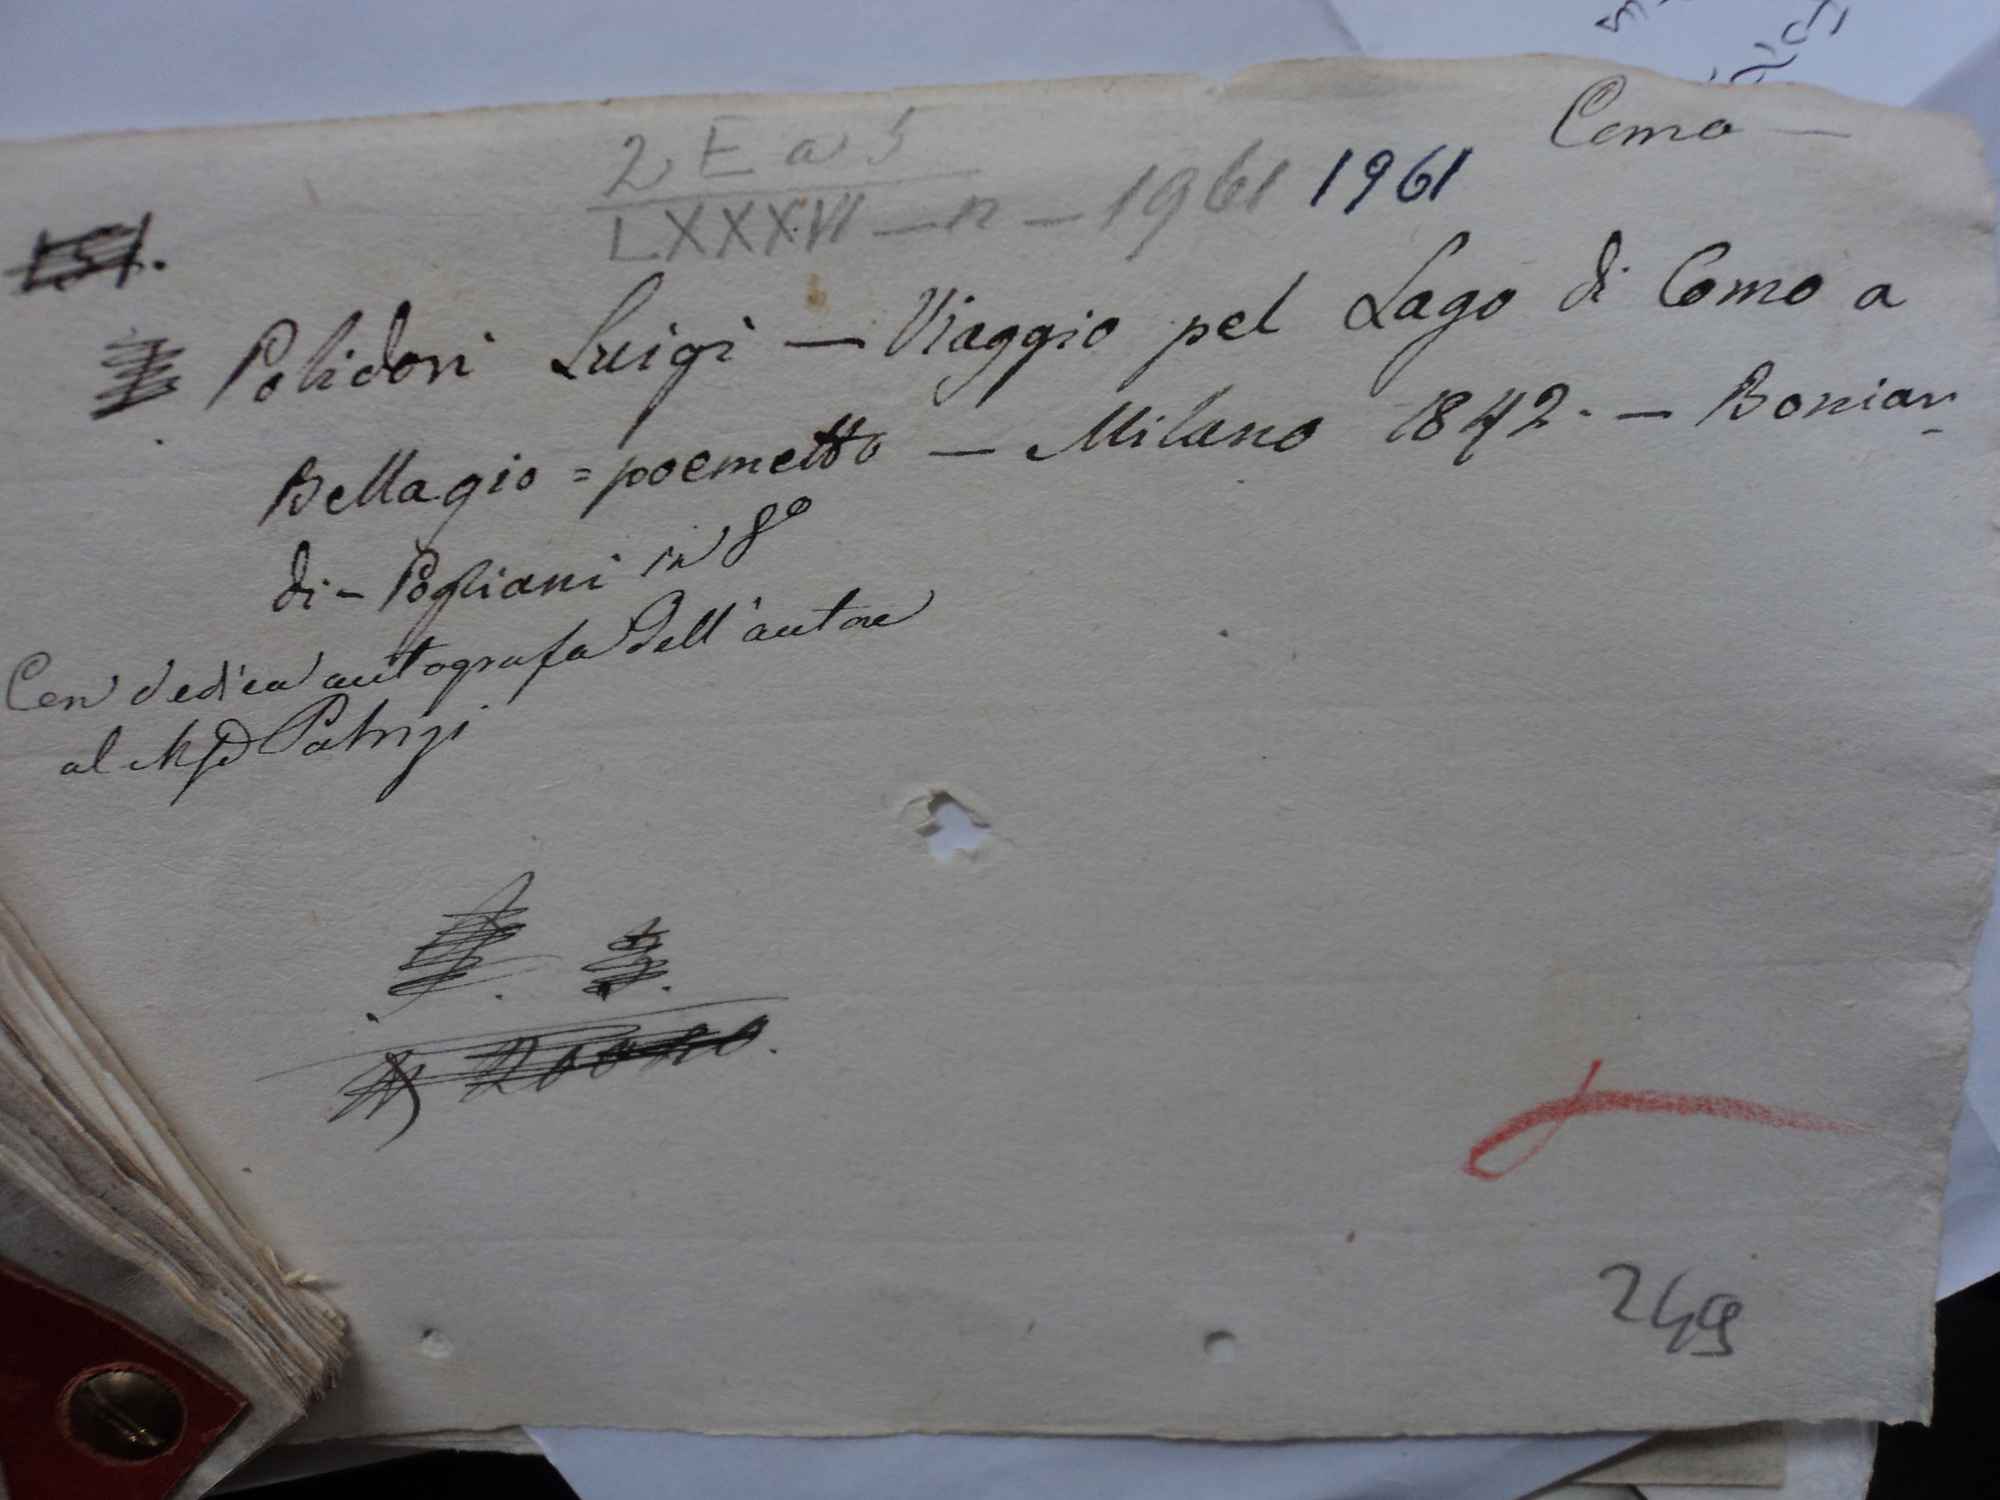 Como —
2 E a 5
LXXXVI — n — 1961 1961
151.
Polidori Luigi — Viaggio pel Lago di Como a
Bellagio = poemetto — Milano 1842. — Bonian
di - Pogliani in 8º
Con dedica autografa dell'autore
al Patrizi
249